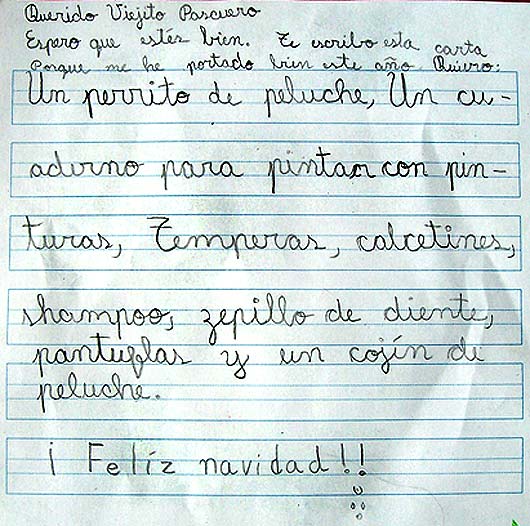 Querido Viejito Pascuero
Espero que estés bien. Te escribo esta carta
Porque me he portado bien este año. Quiero:
Un perrito de peluche, Un cu-
aderno para pintar con pin-
turas, Temperas, calcetines,
shampoo, zepillo de diente,
pantuflas y un cojín de
peluche.
¡ Felíz navidad!!